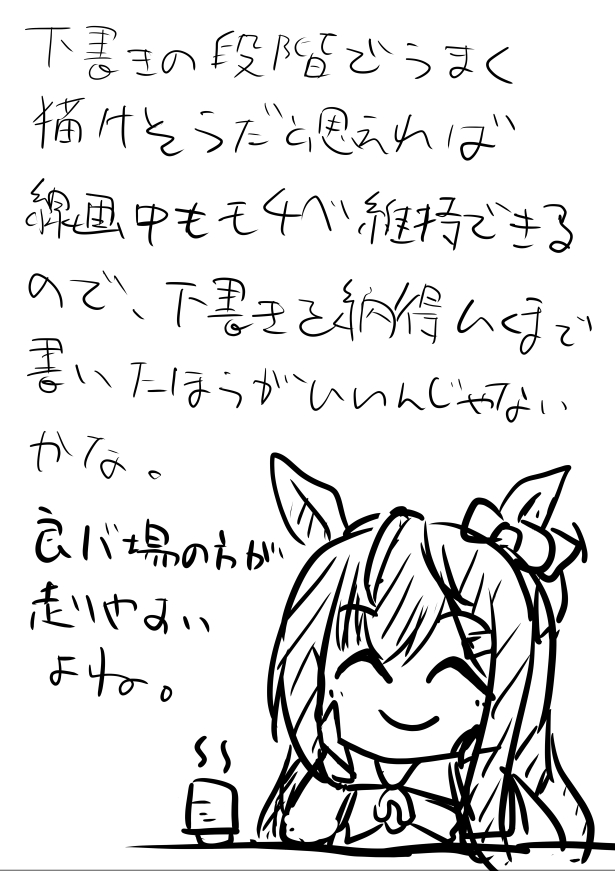 下書きの段階でうまく
描けそうだと思えれば
線画中もモチベ維持できる
ので、下書きを納得いくまで
書いたほうがいいんじゃない
かな。
良バ場の方が
走りやすい
よね。